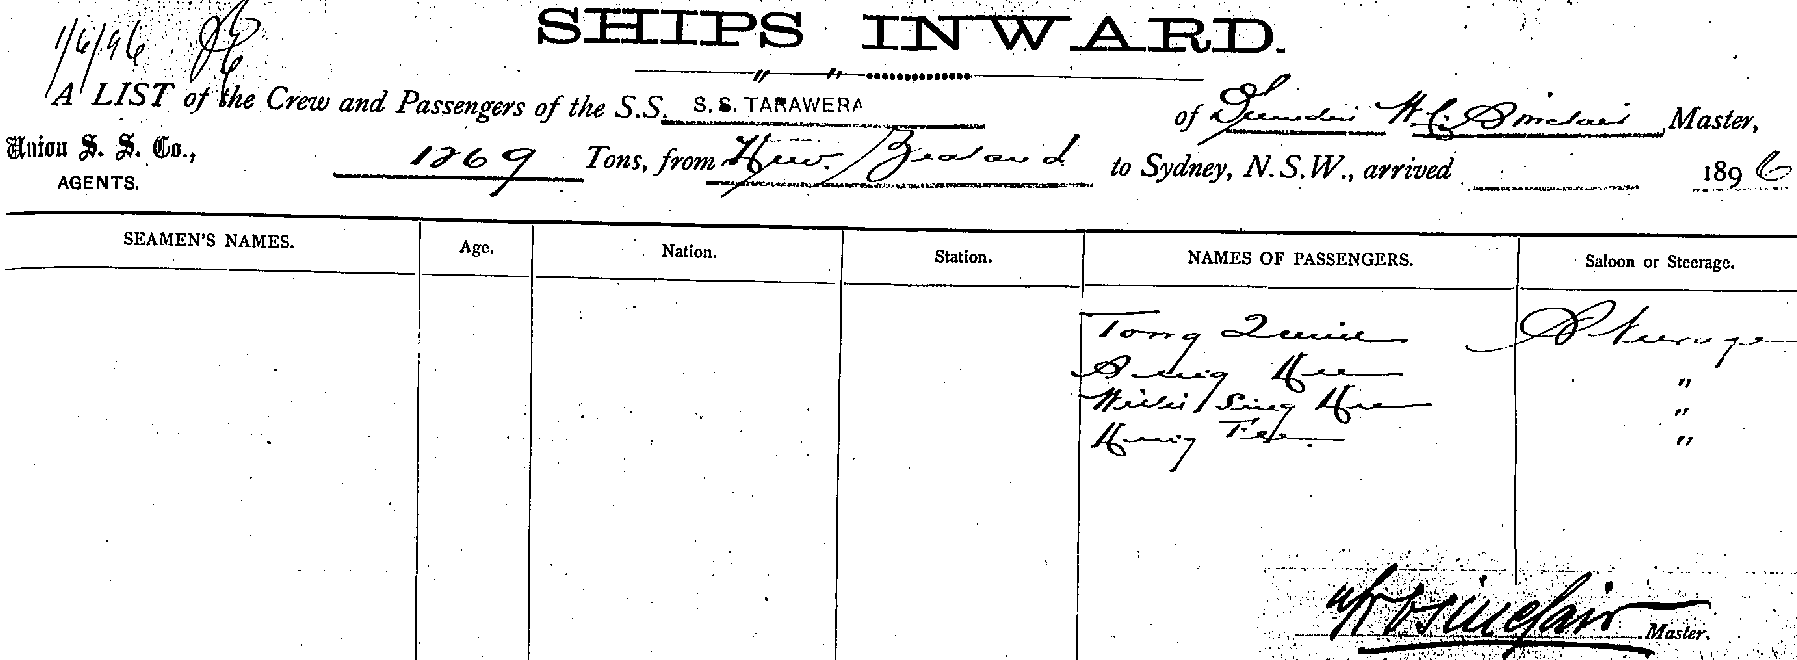 SHIPS INWARD.
1/6/96
" "
A LIST of the Crew and Passengers of the S.S. S. S. TARAWERA of Dunedin W. C. Sinclair Master,
Union S. S. Co., AGENTS. 1269 Tons, from New Zealand to Sydney, N.S.W., arrived 1896
SEAMEN'S NAMES. Age. Nation. Station. NAMES OF PASSENGERS. Saloon or Steerage.
Tong Steerage
"
Sing Hee "
Fee "
Sinclair Master.